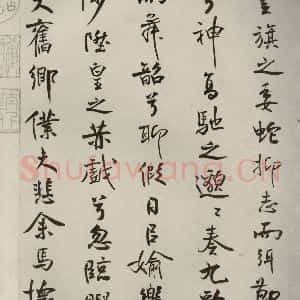 雲旗之委蛇抑志而弭節
兮神高馳之邈〻奏九歌
而舞韶兮聊假日以媮樂
陟陞皇之赫戲兮忽臨睨
夫舊鄉僕夫悲余馬懷
Shufawang.cn